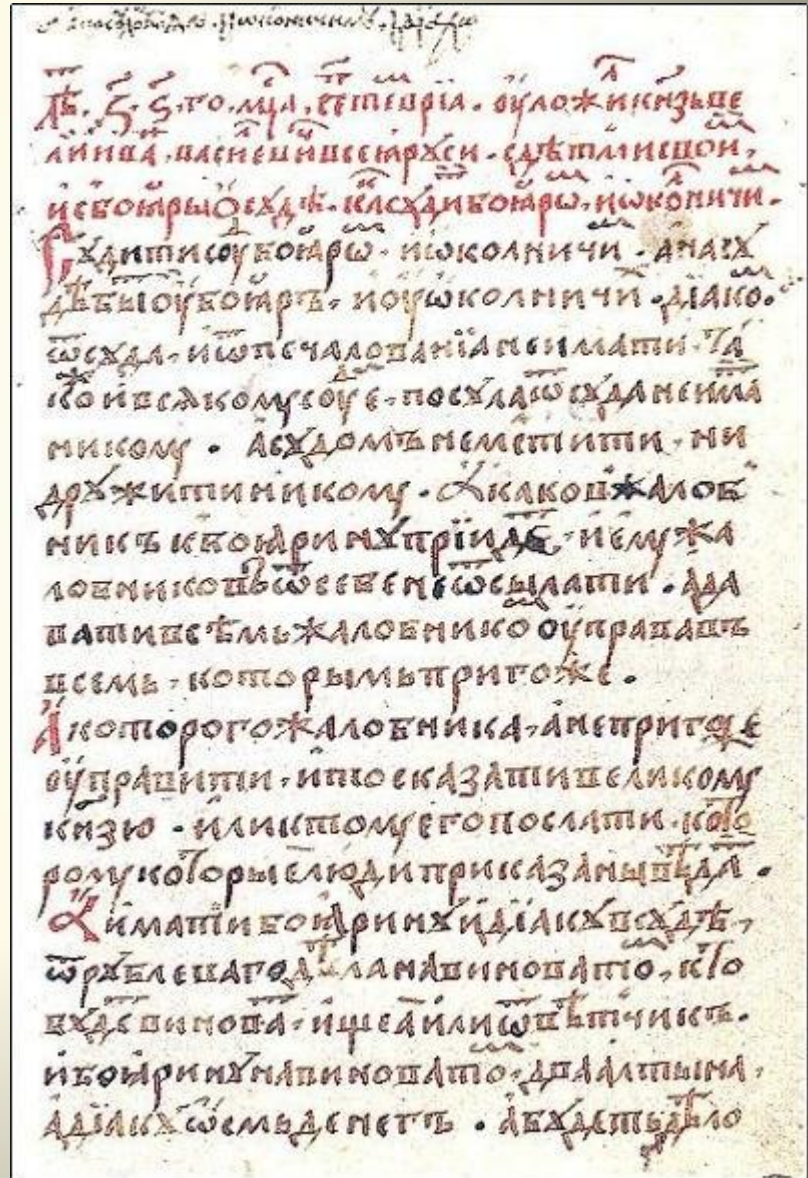 лѣ҇т ҂з҃ ѕ҃ го мц҃а септевріа оуложи кнѧзь ве
ликіи ива васи не ви всеꙗ рꙋси с дѣтми свои
и с боꙗры ѡ сꙋдѣ ка сꙋди боꙗрѡ и ѡколничи
Сꙋдити сꙋ боꙗрѡ и ѡколничи а на сꙋ
дѣ бы оу боꙗръ и оу ѡколничи діако
ѿ сꙋда и ѿ печалованіа не имати та
ко и всѧкомꙋ соуе посꙋла ѿ сꙋда не има
никомꙋ а сꙋдомъ не мстити ни
дрꙋжити никомꙋ а каков жалоб
никъ к боꙗринꙋ прїиде и емꙋ жа
лобниковъ ѿ себе не ѿсылати а да
вати всѣмь жалобнико оуправа въ
всемь которымь пригоже
А которого жалобника а не пригоже
оуправити и то сказати великомꙋ
кнѧзю или к томꙋ его послати кото
ромꙋ которые люди приказаны вѣда
А имати боꙗринꙋ и діакꙋ в сꙋдѣ
ѿ рꙋблеваго дѣла на виновато кто
бꙋде винова ищеа или ѿвѣтчикъ
и боꙗринꙋ на виновато два алтына
а діакꙋ ѡсмь денегъ а бꙋдеть дѣло